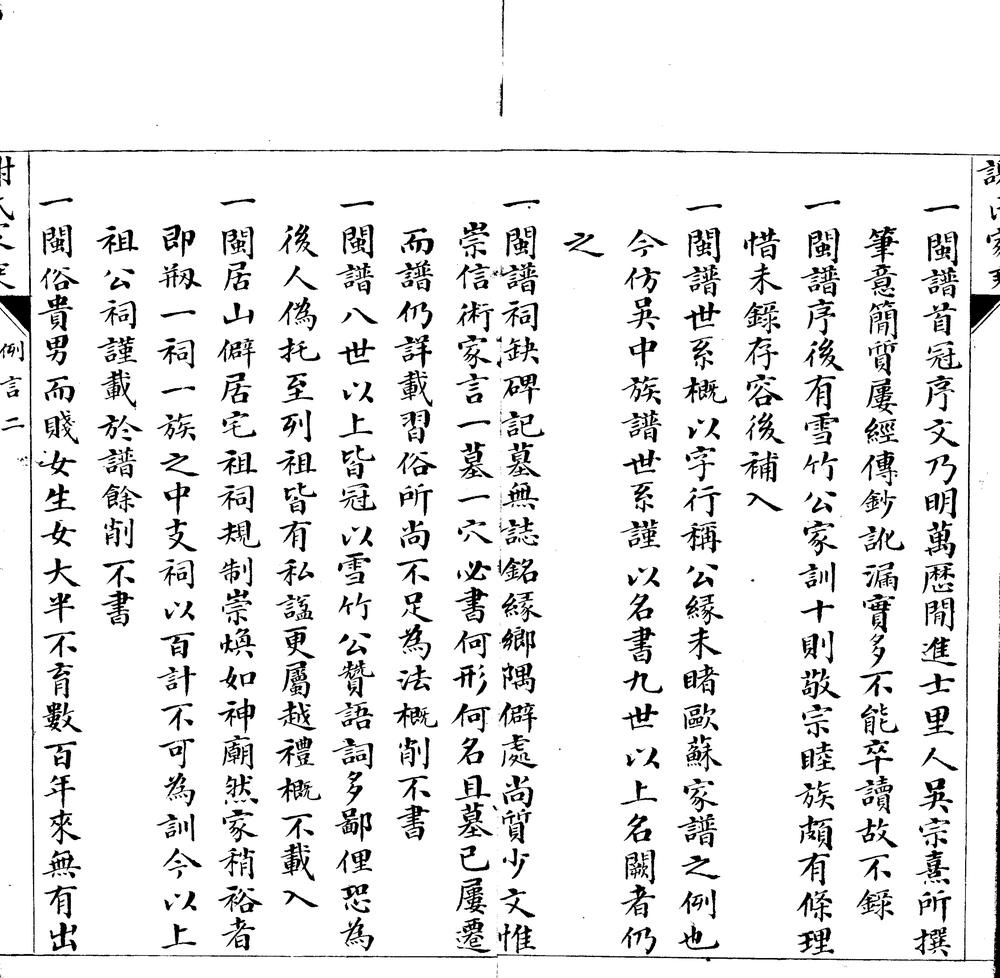 一閩譜首冠序文乃明萬歷間進士里人吳宗熹所撰
筆意簡質屢經傳鈔訛漏實多不能卒讀故不錄
一閩譜序後有雪竹公家訓十則敬宗睦族頗有條理
惜未錄存容後補入
一閩譜世系概以字行稱公緣未睹歐蘇家譜之例也
今仿吳中族譜世系謹以名書九世以上名闕者仍
之
一閩譜祠缺碑記墓無誌銘緣鄉隅僻處尚質少文惟
崇信術家言一墓一穴必書何形何名且墓已屢遷
而譜仍詳載習俗所尚不足為法概削不書
一閩譜八世以上皆冠以雪竹公贊語詞多鄙俚恐為
後人偽托至列祖皆有私諡更屬越禮概不載入
一閩居山僻居宅祖祠規制崇煥如神廟然家稍裕者
即剏一祠一族之中支祠以百計不可為訓今以上
祖公祠謹載於譜餘削不書
一閩俗貴男而賤女生女大半不育數百年來無有出
例言二